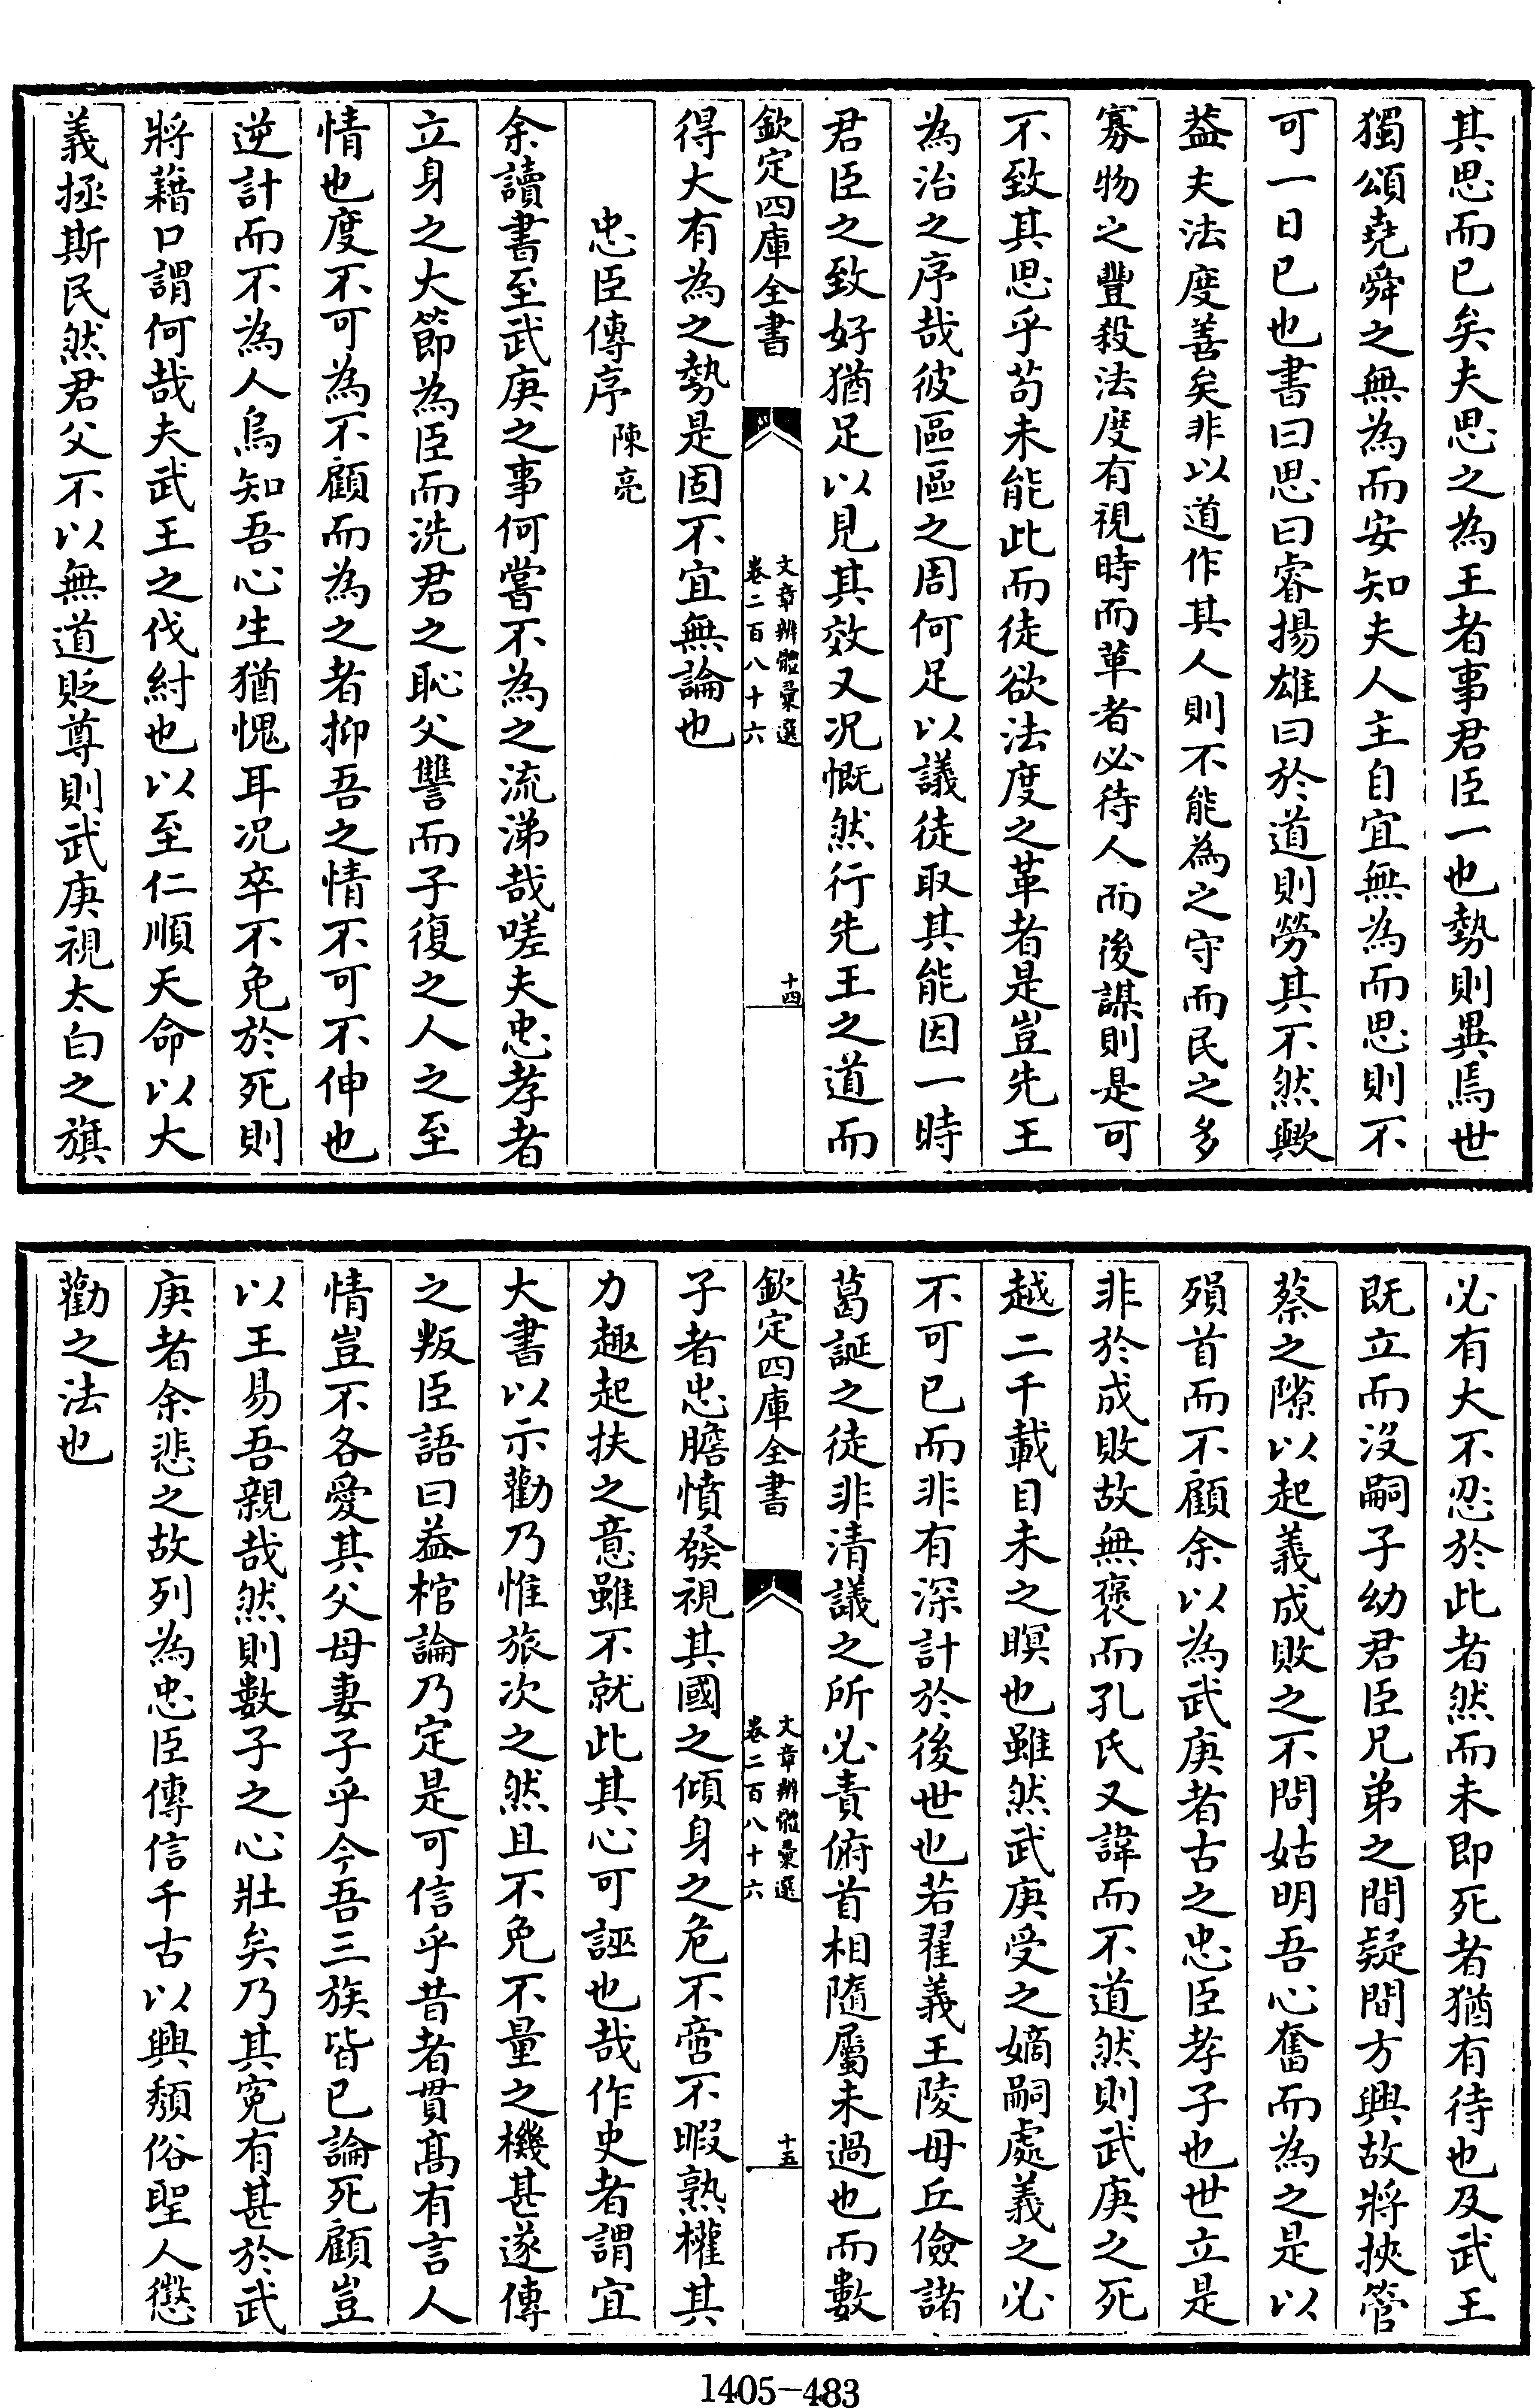 其思而已矣夫思之為王者事君臣一也勢則異焉世
獨頌堯舜之無為而安知夫人主自宜無為而思則不
可一日已也書曰思曰睿揚雄曰於道則勞其不然歟
葢夫法度善矣非以道作其人則不能為之守而民之多
寡物之豐殺法度有視時而革者必待人而後謀則是可
不致其思乎苟未能此而徒欲法度之革者是豈先王
為治之序哉彼區區之周何足以議徒取其能因一時
君臣之致好猶足以見其效又况慨然行先王之道而
欽定四庫全書
文章辨體彚選
卷二百八十六
十四
得大有為之勢是固不宜無論也
忠臣傳序 陳亮
余讀書至武庚之事何嘗不為之流涕哉嗟夫忠孝者
立身之大節為臣而洗君之恥父讐而子復之人之至
情也度不可為不顧而為之者抑吾之情不可不伸也
逆計而不為人烏知吾心生猶愧耳况卒不免於死則
將藉口謂何哉夫武王之伐紂也以至仁順天命以大
義拯斯民然君父不以無道貶尊則武庚視太白之旗
必有大不忍於此者然而未即死者猶有待也及武王
既立而沒嗣子幼君臣兄弟之間疑間方興故將挾管
蔡之隙以起義成敗之不問姑明吾心奮而為之是以
殞首而不顧余以為武庚者古之忠臣孝子也世立是
非於成敗故無褒而孔氏又諱而不道然則武庚之死
越二千載目未之瞑也雖然武庚受之嫡嗣處義之必
不可已而非有深計於後世也若翟義王陵毋丘儉諸
葛誕之徒非清議之所必責俯首相隨屬未過也而數
欽定四庫全書
文章辨體彚選
卷二百八十六
十五
子者忠膽憤發視其國之傾身之危不啻不暇熟權其
力趣起扶之意雖不就此其心可誣也哉作史者謂宜
大書以示勸乃惟旅次之然且不免不量之機甚遂傳
之叛臣語曰葢棺論乃定是可信乎昔者貫髙有言人
情豈不各愛其父母妻子乎今吾三族皆已論死顧豈
以王易吾親哉然則數子之心壯矣乃其寃有甚於武
庚者余悲之故列為忠臣傳信千古以興頽俗聖人懲
勸之法也
1405-483